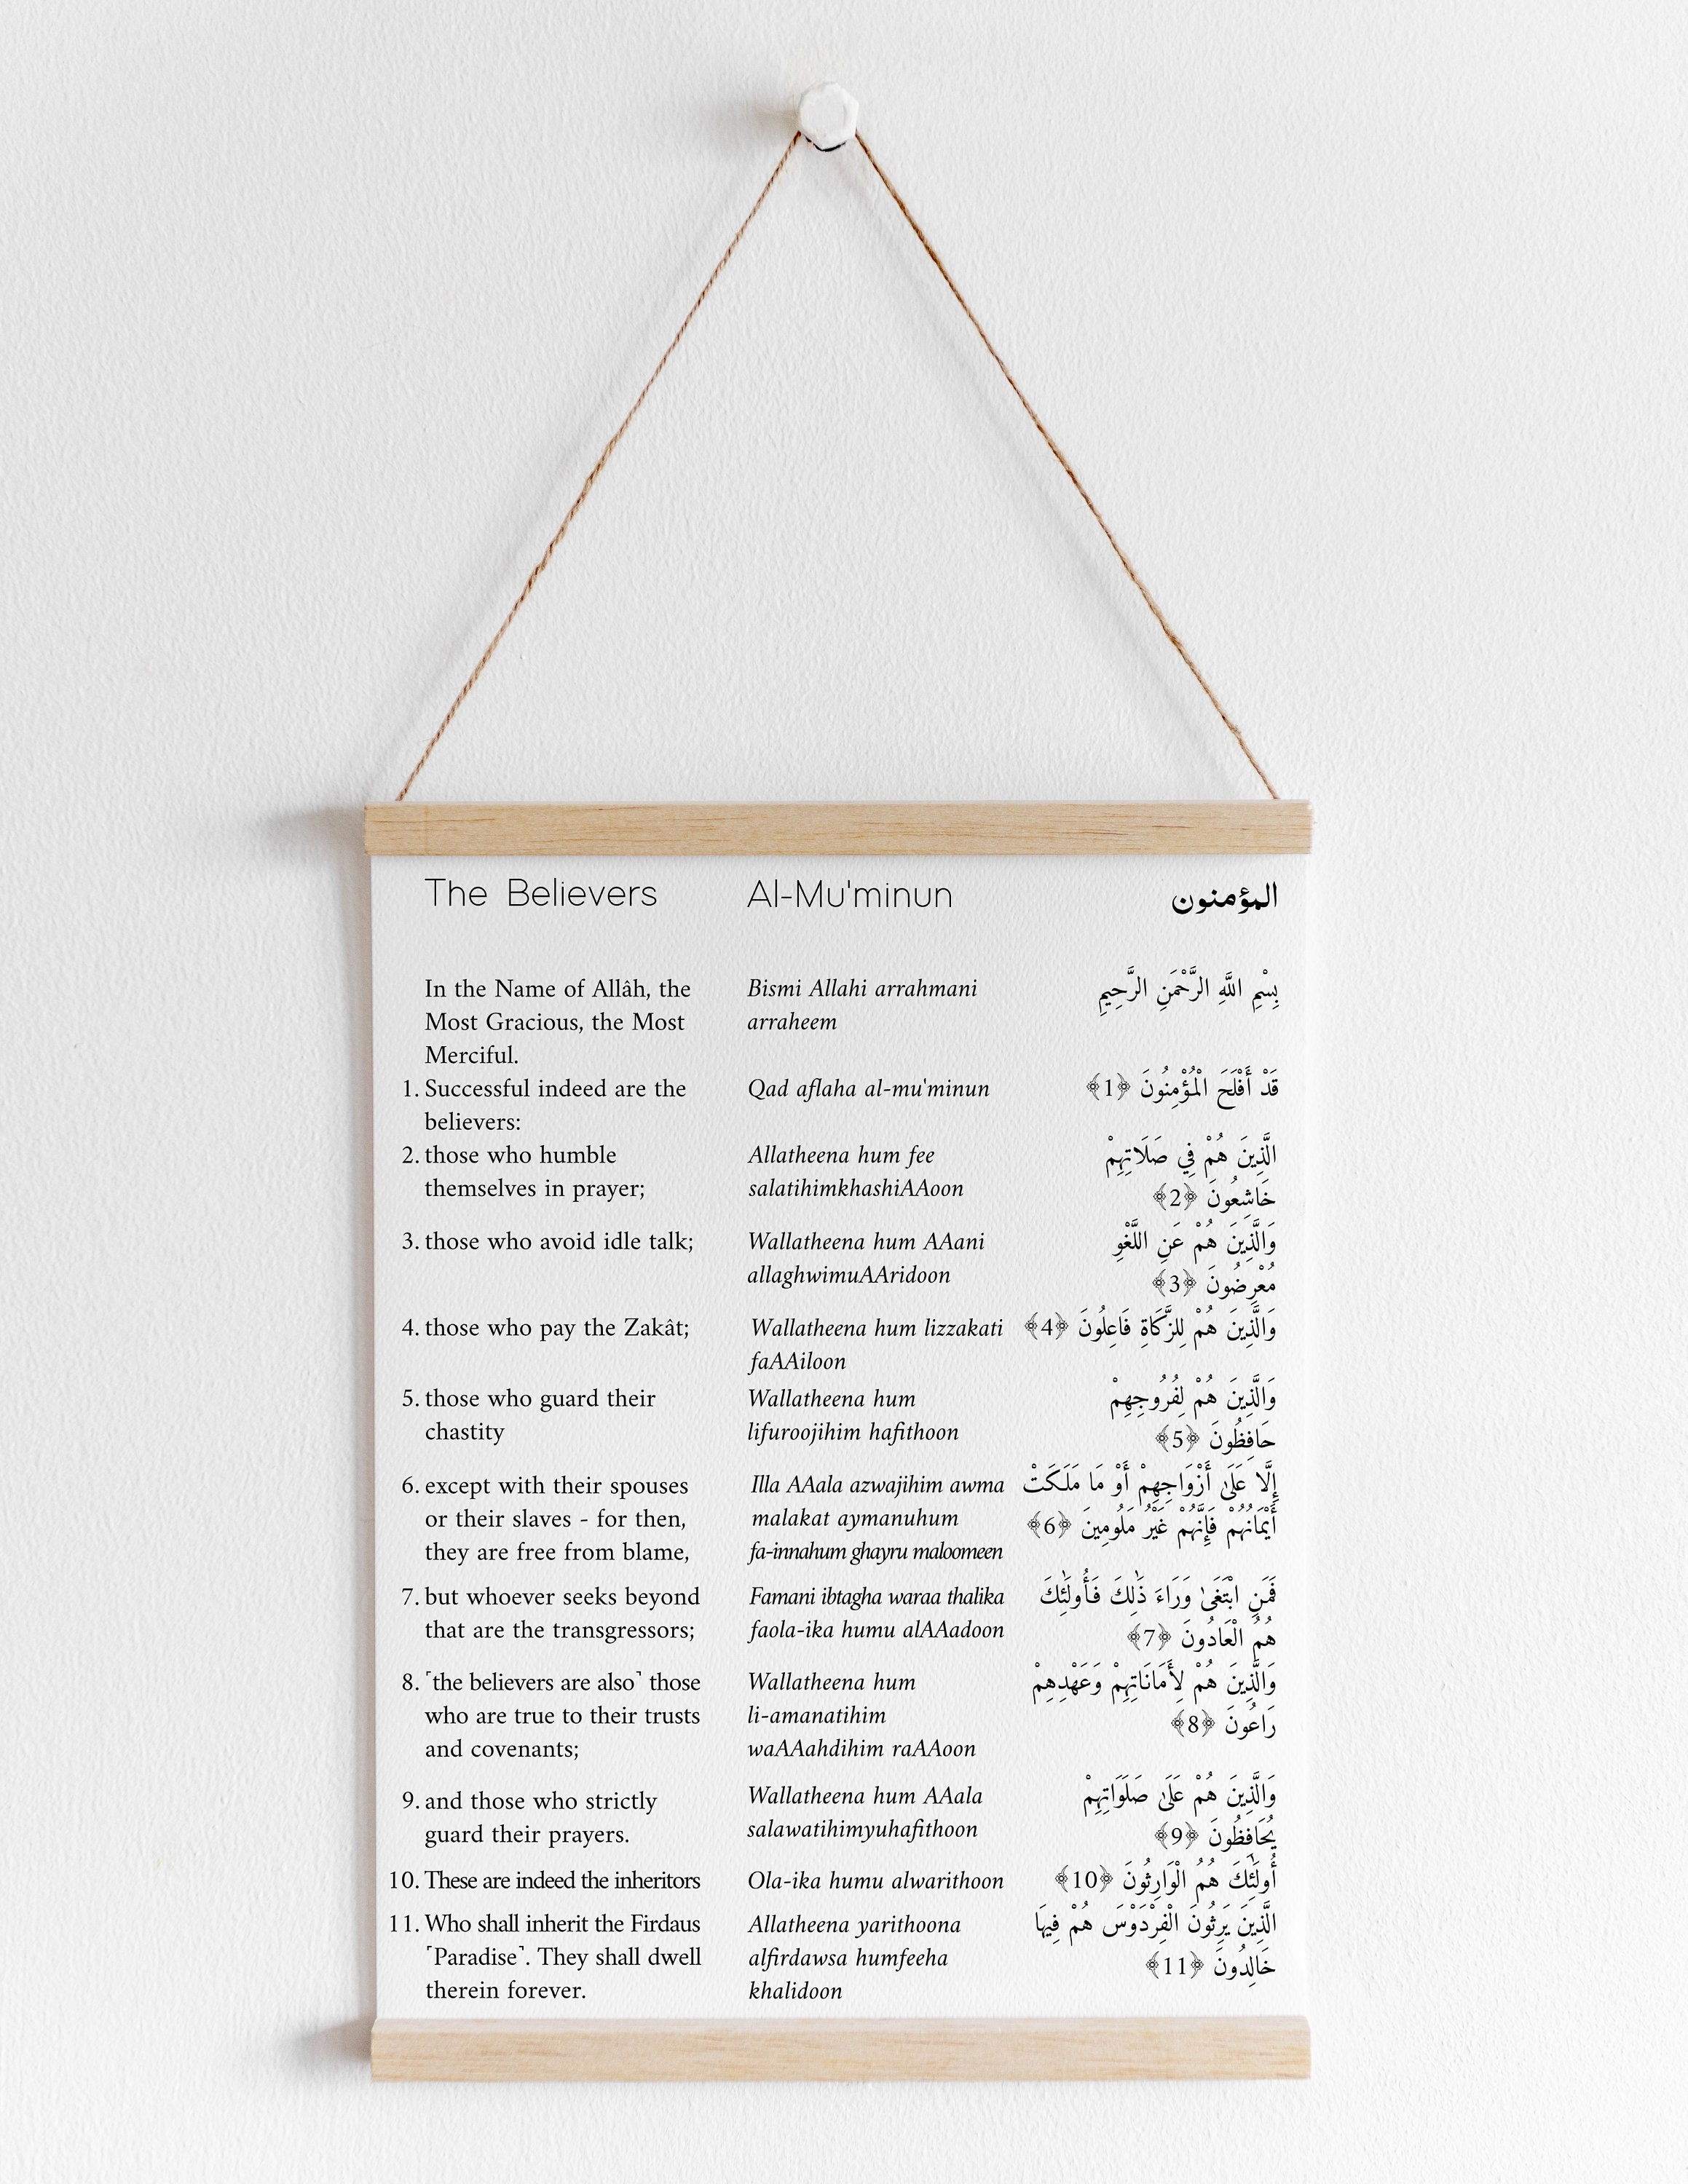 The Believers
In the Name of Allâh, the
Most Gracious, the Most
Merciful.
1. Successful indeed are the
believers:
2. those who humble
themselves in prayer;
3. those who avoid idle talk;
4. those who pay the Zakât;
5. those who guard their
chastity
6. except with their spouses
or their slaves - for then,
they are free from blame,
7. but whoever seeks beyond
that are the transgressors;
8. ⸢the believers are also⸣ those
who are true to their trusts
and covenants;
9. and those who strictly
guard their prayers.
10. These are indeed the inheritors
11. Who shall inherit the Firdaus
⸢Paradise⸣. They shall dwell
therein forever.
Al-Mu'minun
Bismi Allahi arrahmani
arraheem
Qad aflaha al-mu'minun
Allatheena hum fee
salatihimkhashiAAoon
Wallatheena hum AAani
allaghwimuAAridoon
Wallatheena hum lizzakati
faAAiloon
Wallatheena hum
lifuroojihim hafithoon
Illa AAala azwajihim awma
malakat aymanuhum
fa-innahum ghayru maloomeen
Famani ibtagha waraa thalika
faola-ika humu alAAadoon
Wallatheena hum
li-amanatihim
waAAahdihim raAAoon
Wallatheena hum AAala
salawatihimyuhafithoon
Ola-ika humu alwarithoon
Allatheena yarithoona
alfirdawsa humfeeha
khalidoon
المؤمنون
بِسْمِ اللَّهِ الرَّحْمَنِ الرَّحِيمِ
قَدْ أَفْلَحَ الْمُؤْمِنُونَ ﴿1﴾
الَّذِينَ هُمْ فِي صَلَاتِهِمْ
خَاشِعُونَ ﴿2﴾
وَالَّذِينَ هُمْ عَنِ اللَّغْوِ
مُعْرِضُونَ ﴿3﴾
وَالَّذِينَ هُمْ لِلزَّكَاةِ فَاعِلُونَ ﴿4﴾
وَالَّذِينَ هُمْ لِفُرُوجِهِمْ
حَافِظُونَ ﴿5﴾
إِلَّا عَلَىٰ أَزْوَاجِهِمْ أَوْ مَا مَلَكَتْ
أَيْمَانُهُمْ فَإِنَّهُمْ غَيْرُ مَلُومِينَ ﴿6﴾
فَمَنِ ابْتَغَىٰ وَرَاءَ ذَٰلِكَ فَأُولَٰئِكَ
هُمُ الْعَادُونَ ﴿7﴾
وَالَّذِينَ هُمْ لِأَمَانَاتِهِمْ وَعَهْدِهِمْ
رَاعُونَ ﴿8﴾
وَالَّذِينَ هُمْ عَلَىٰ صَلَوَاتِهِمْ
يُحَافِظُونَ ﴿9﴾
أُولَٰئِكَ هُمُ الْوَارِثُونَ ﴿10﴾
الَّذِينَ يَرِثُونَ الْفِرْدَوْسَ هُمْ فِيهَا
خَالِدُونَ ﴿11﴾